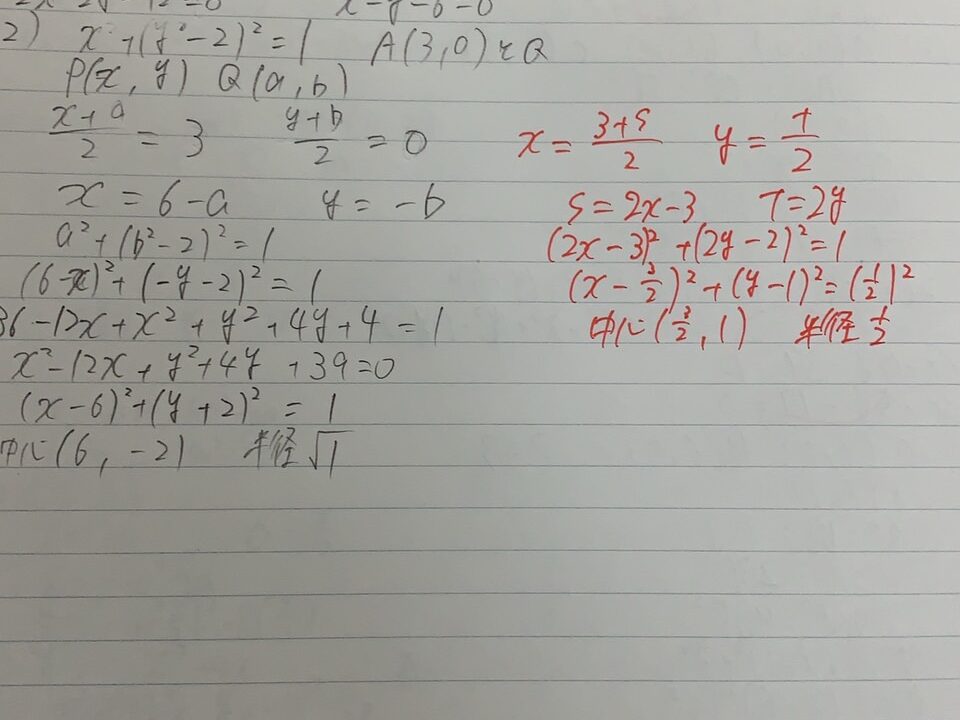 2) x²+(y²-2)²=1 A(3,0)とQ
P(x, y) Q(a, b)
(x+a)/2 = 3 (y+b)/2 = 0
x = 6-a y = -b
a²+(b²-2)²=1
(6-x)²+(-y-2)²=1
36-12x+x²+y²+4y+4=1
x²-12x+y²+4y+39=0
(x-6)²+(y+2)²=1
中心(6, -2) 半径√1
x = (3+s)/2 y = t/2
s=2x-3 t=2y
(2x-3)²+(2y-2)²=1
(x-3/2)²+(y-1)²=(1/2)²
中心(3/2, 1) 半径1/2